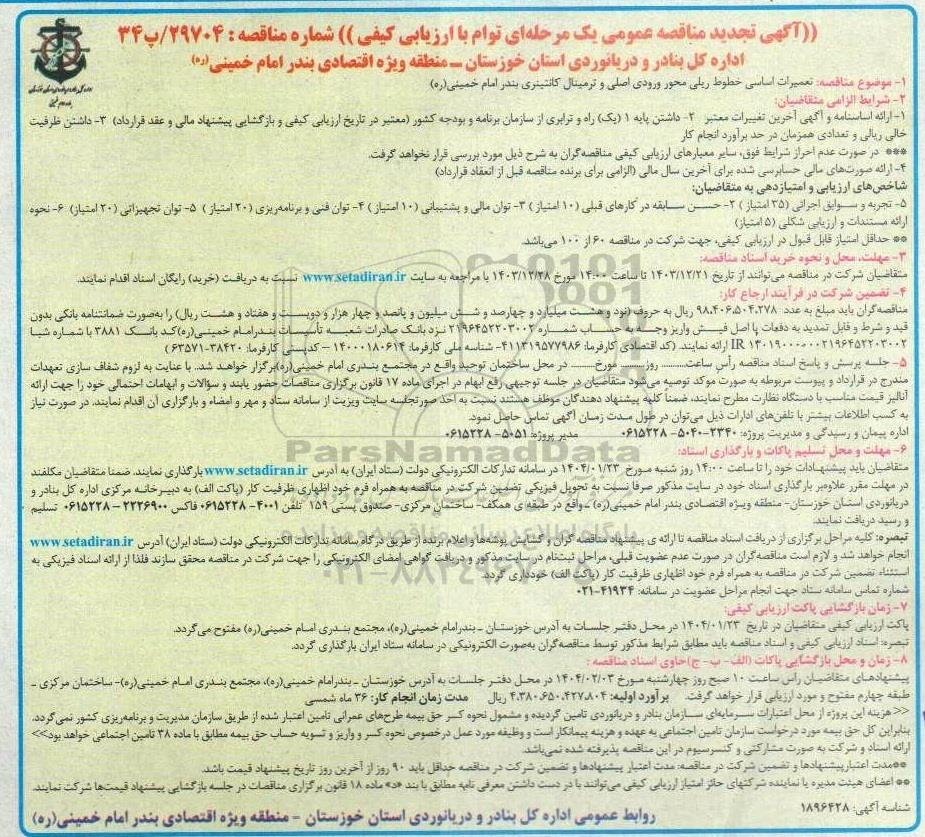 ((آگهی تجدید مناقصه عمومی یک مرحله‌ای توام با ارزیابی کیفی )) شماره مناقصه : ۲۹۷۰۴/پ۳۴
اداره کل بنادر و دریانوردی استان خوزستان ــ منطقه ویژه اقتصادی بندر امام خمینی (ره)
۱- موضوع مناقصه: تعمیرات اساسی خطوط ریلی محور ورودی اصلی و ترمینال کانتینری بندر امام خمینی(ره)
۲- شرایط الزامی متقاضیان:
۱- ارائه اساسنامه و آگهی آخرین تغییرات معتبر ۲- داشتن پایه ۱ (یک) راه و ترابری از سازمان برنامه و بودجه کشور (معتبر در تاریخ ارزیابی کیفی و بازگشایی پیشنهاد مالی و عقد قرارداد) ۳- داشتن ظرفیت
خالی ریالی و تعدادی همزمان در حد برآورد انجام کار
*** در صورت عدم احراز شرایط فوق، سایر معیارهای ارزیابی کیفی مناقصه‌گران به شرح ذیل مورد بررسی قرار نخواهد گرفت.
۴- ارائه صورت‌های مالی حسابرسی شده برای آخرین سال مالی (الزامی برای برنده مناقصه قبل از انعقاد قرارداد)
شاخص‌های ارزیابی و امتیازدهی به متقاضیان:
۵- تجربه و سوابق اجرائی (۳۵ امتیاز ) ۲- حسن سابقه در کارهای قبلی (۱۰ امتیاز ) ۳- توان مالی و پشتیبانی (۱۰ امتیاز ) ۴- توان فنی و برنامه‌ریزی (۲۰ امتیاز ) ۵- توان تجهیزاتی (۲۰ امتیاز) ۶- نحوه
ارائه مستندات و ارزیابی شکلی (۵ امتیاز)
** حداقل امتیاز قابل قبول در ارزیابی کیفی، جهت شرکت در مناقصه ۶۰ از ۱۰۰ می‌باشد.
۳- مهلت، محل و نحوه خرید اسناد مناقصه:
متقاضیان شرکت در مناقصه می‌توانند از تاریخ ۱۴۰۳/۱۲/۲۱ تا ساعت ۱۴:۰۰ مورخ ۱۴۰۳/۱۲/۲۸ با مراجعه به سایت www.setadiran.ir نسبت به دریافت (خرید) رایگان اسناد اقدام نمایند.
۴- تضمین شرکت در فرآیند ارجاع کار:
مناقصه‌گران باید مبلغ به عدد ۹۸.۴۰۶.۵۰۴.۲۷۸ ریال به حروف (نود و هشت میلیارد و چهارصد و شش میلیون و پانصد و چهار هزار و دویست و هفتاد و هشت ریال) را به‌صورت ضمانتنامه بانکی بدون
قید و شرط و قابل تمدید به دفعات یا اصل فیش واریز وجه به حساب شماره ۲۱۹۶۴۵۲۲۰۳۰۰۲ نزد بانک صادرات شعبه تأسیسات بندرامام خمینی(ره)کد بانک ۳۸۸۱ با شماره شبا
ارائه نمایند. (کد اقتصادی کارفرما: ۴۱۱۳۱۹۵۷۷۹۸۶- شناسه ملی کارفرما: ۱۴۰۰۰۱۸۰۶۱۴ – کدپستی کارفرما: ۳۸۴۲۰-۶۳۵۷۱)
۵- جلسه پرسش و پاسخ اسناد مناقصه رأس ساعت........ روز...... مورخ....... در محل ساختمان توحید واقع در مجتمع بندری امام خمینی(ره)برگزار خواهد شد. با عنایت به لزوم شفاف سازی تعهدات
مندرج در قرارداد و پیوست مربوطه به صورت موکد توصیه می‌شود متقاضیان در جلسه توجیهی رفع ابهام در اجرای ماده ۱۷ قانون برگزاری مناقصات حضور یابند و سؤالات و ابهامات احتمالی خود را جهت ارائه
آنالیز قیمت مناسب با دستگاه نظارت مطرح نمایند، ضمناً کلیه پیشنهاد دهندگان موظف هستند نسبت به اخذ صورتجلسه سایت ویزیت از سامانه ستاد و مهر و امضاء و بارگزاری آن اقدام نمایند. در صورت نیاز
به کسب اطلاعات بیشتر با تلفن‌های ادارات ذیل می‌توان در طول مدت زمان آگهی تماس حاصل نمود.
اداره پیمان و رسیدگی و مدیریت پروژه: ۲۳۴۰-۵۰۴۰-۰۶۱۵۲۲۸ مدیر پروژه: ۵۰۵۱-۰۶۱۵۲۲۸
۶- مهلت و محل تسلیم پاکات و بارگذاری اسناد:
متقاضیان باید پیشنهادات خود را تا ساعت ۱۴:۰۰ روز شنبه مورخ ۱۴۰۴/۰۱/۲۳ در سامانه تدارکات الکترونیکی دولت (ستاد ایران) به آدرس www.setadiran.ir بارگذاری نمایند. ضمنا متقاضیان مکلفند
در مهلت مقرر علاوه‌بر بارگذاری اسناد خود در سایت مذکور صرفا نسبت به تحویل فیزیکی تضمین شرکت در مناقصه به همراه فرم خود اظهاری ظرفیت کار (پاکت الف) به دبیرخانه مرکزی اداره کل بنادر و
دریانوردی استان خوزستان- منطقه ویژه اقتصادی بندر امام خمینی (ره) ـ واقع در طبقه‌ی همکف- ساختمان مرکزی- صندوق پستی ۱۵۹ تلفن ۴۰۰۱- ۰۶۱۵۲۲۸ فاکس ۲۲۲۶۹۰۰ - ۰۶۱۵۲۲۸ تسلیم
و رسید دریافت نمایند.
تبصره: کلیه مراحل برگزاری از دریافت اسناد مناقصه تا ارائه ی پیشنهاد مناقصه گران و گشایش پوشه‌ها و اعلام برنده از طریق درگاه سامانه تدارکات الکترونیکی دولت (ستاد ایران) آدرس www.setadiran.ir
انجام خواهد شد و لازم است مناقصه‌گران در صورت عدم عضویت قبلی، مراحل ثبت‌نام در سایت مذکور و دریافت گواهی امضای الکترونیکی را جهت شرکت در مناقصه محقق سازند فلذا از ارائه اسناد فیزیکی به
استثناء تضمین شرکت در مناقصه به همراه فرم خود اظهاری ظرفیت کار (پاکت الف) خودداری گردد.
شماره تماس سامانه ستاد جهت انجام مراحل عضویت در سامانه: ۴۱۹۳۴-۰۲۱
۷- زمان بازگشایی پاکت ارزیابی کیفی:
پاکت ارزیابی کیفی متقاضیان در تاریخ ۱۴۰۴/۰۱/۲۳ در محل دفتر جلسات به آدرس خوزستان ـ بندرامام خمینی(ره)، مجتمع بندری امام خمینی(ره) مفتوح می‌گردد.
تبصره: اسناد ارزیابی کیفی و اسناد مناقصه باید مطابق شرایط مذکور توسط مناقصه‌گران به‌صورت الکترونیکی در سامانه ستاد ایران بارگذاری گردد.
۸- زمان و محل بازگشایی پاکات (الف- ب- ج)حاوی اسناد مناقصه :
پیشنهادهای متقاضیان راس ساعت ۱۰ صبح روز چهارشنبه مورخ ۱۴۰۴/۰۲/۰۳ در محل دفتر جلسات به آدرس خوزستان ـ بندرامام خمینی(ره)، مجتمع بندری امام خمینی(ره)- ساختمان مرکزی ـ
طبقه چهارم مفتوح و مورد ارزیابی قرار خواهد گرفت. برآورد اولیه: ۴.۳۸۰.۶۵۰.۴۲۷.۸۰۴ ریال مدت زمان انجام کار: ۳۶ ماه شمسی
<<هزینه این پروژه از محل اعتبارات سرمایه‌ای سازمان بنادر و دریانوردی تامین گردیده و مشمول نحوه کسر حق بیمه طرح‌های عمرانی تامین اعتبار شده از طریق سازمان مدیریت و برنامه‌ریزی کشور نمی‌گردد.
بنابراین کل حق بیمه مورد درخواست سازمان تامین اجتماعی به عهده و هزینه پیمانکار است و وظیفه مورد عمل درخصوص نحوه کسر و واریز و تسویه حساب حق بیمه مطابق با ماده ۳۸ تامین اجتماعی خواهد بود>>
ارائه اسناد و شرکت به صورت مشارکتی و کنسرسیوم در این مناقصه پذیرفته شده نمی‌باشد.
**مدت اعتبار پیشنهادها و تضمین شرکت در مناقصه: مدت اعتبار پیشنهادها و تضمین شرکت در مناقصه حداقل باید ۹۰ روز از آخرین روز تاریخ پیشنهاد قیمت باشد.
** اعضای هیئت مدیره یا نماینده شرکتهای حائز امتیاز ارزیابی کیفی می‌توانند با در دست داشتن معرفی نامه مطابق با بند «د» ماده ۱۸ قانون برگزاری مناقصات در جلسه بازگشایی پیشنهاد قیمت‌ها شرکت نمایند.
شناسه آگهی: ۱۸۹۶۴۲۸
روابط عمومی اداره کل بنادر و دریانوردی استان خوزستان - منطقه ویژه اقتصادی بندر امام خمینی(ره)
ParsNamadData